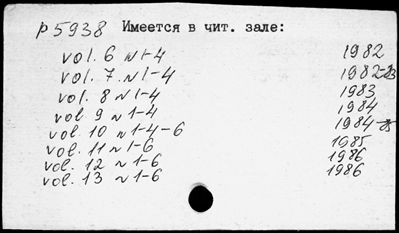 p5938 Имеется в чит. зале:
vol. 6 N 1-4 1982
vol. 7 N 1-4 1982-83
vol. 8 N 1-4 1983
vol 9 N 1-4 1984
vol. 10 N 1-4-6 1984-85
vol. 11 N 1-6 1985
vol. 12 N 1-6 1986
vol. 13 N 1-6 1986